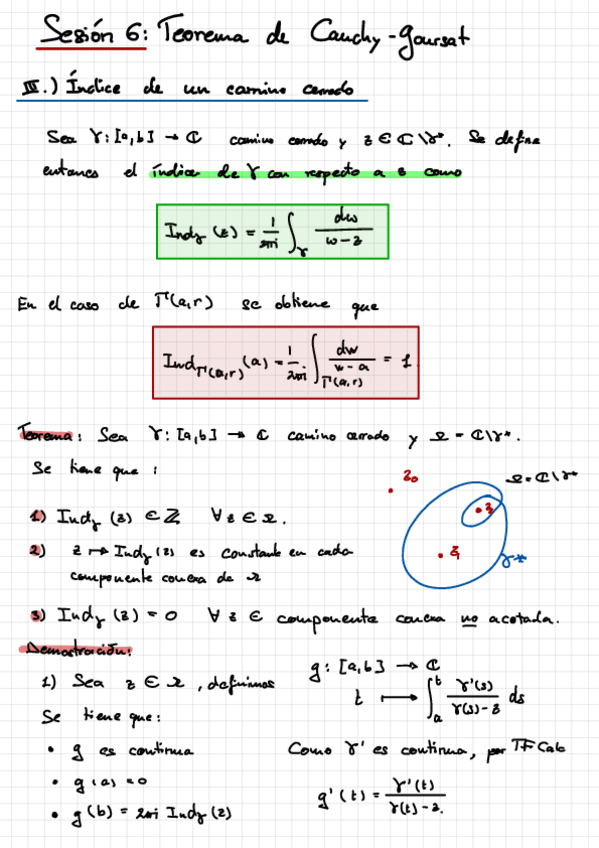 Sesión 6: Teorema de Cauchy-Goursat
III.) Índice de un camino cerrado
Sea γ: [a,b] → ℂ camino cerrado y z ∈ ℂ\γ*. Se define
entonces el índice de γ con respecto a z como
Indγ (z) = 1/2πi ∫γ dw/(w-z)
En el caso de Γ(a,r) se obtiene que
Ind_Γ(a,r) (a) = 1/2πi ∫_Γ(a,r) dw/(w-a) = 1
Teorema: Sea γ: [a,b] → ℂ camino cerrado y Ω = ℂ\γ*.
Se tiene que:
z₀
Ω = ℂ\γ*
1) Indγ (z) ∈ ℤ ∀z ∈ Ω.
2) z ↦ Indγ (z) es constante en cada
componente conexa de Ω
z₁
γ*
3) Indγ (z) = 0 ∀z ∈ componente conexa no acotada.
Demostración:
1) Sea z ∈ Ω, definimos
g: [a,b] → ℂ
t ↦ ∫_a^t γ'(s)/(γ(s)-z) ds
Se tiene que:
• g es continua
Como γ' es continua, por TFCalc
• g(a) = 0
• g(b) = 2πi Indγ (z)
g'(t) = γ'(t)/(γ(t)-z).